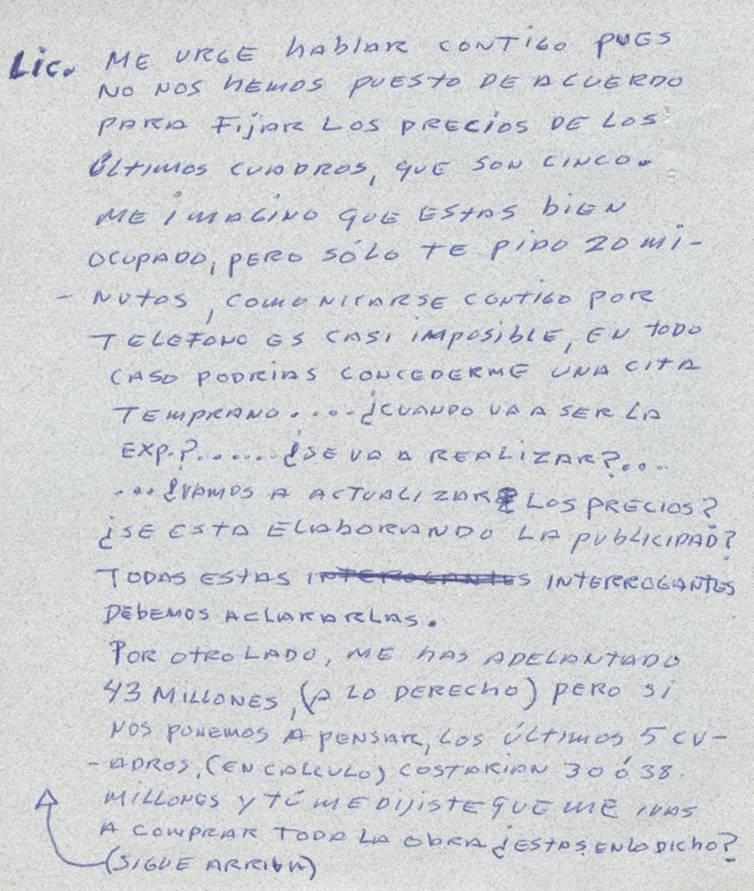 Lic. ME URGE hablar CONTIGO PUES
NO NOS hEMOS PUESTO DE ACUERDO
PARA FIJAR LOS PRECIOS DE LOS
ÚLTIMOS CUADROS, QUE SON CINCO.
ME IMAGINO QUE ESTAS bIEN
OCUPADO, PERO SÓLO TE PIDO 20 MI-
- NUTOS, COMUNICARSE CONTIGO POR
TELEFONO ES CASI IMPOSIBLE, EN TODO
CASO PODRIAS CONCEDERME UNA CITA
TEMPRANO.....¿CUANDO VA A SER LA
EXP.?......¿SE VA A REALIZAR?...
...¿VAMOS A ACTUALIZAR LOS PRECIOS?
¿SE ESTA ELABORANDO LA PUBLICIDAD?
TODAS ESTAS INTEROGANTES INTERROGANTES
DEBEMOS ACLARARLAS.
POR OTRO LADO, ME hAS ADELANTADO
43 MILLONES, (A LO DERECHO) PERO SI
NOS PONEMOS A PENSAR, LOS ÚLTIMOS 5 CU-
- ADROS, (EN CALCULO) COSTARIAN 30 Ó 38.
MILLONES Y TÚ ME DIJISTE QUE ME IVAS
A COMPRAR TODA LA OBRA ¿ESTAS EN LO DICHO?
(SIGUE ARRIBA)